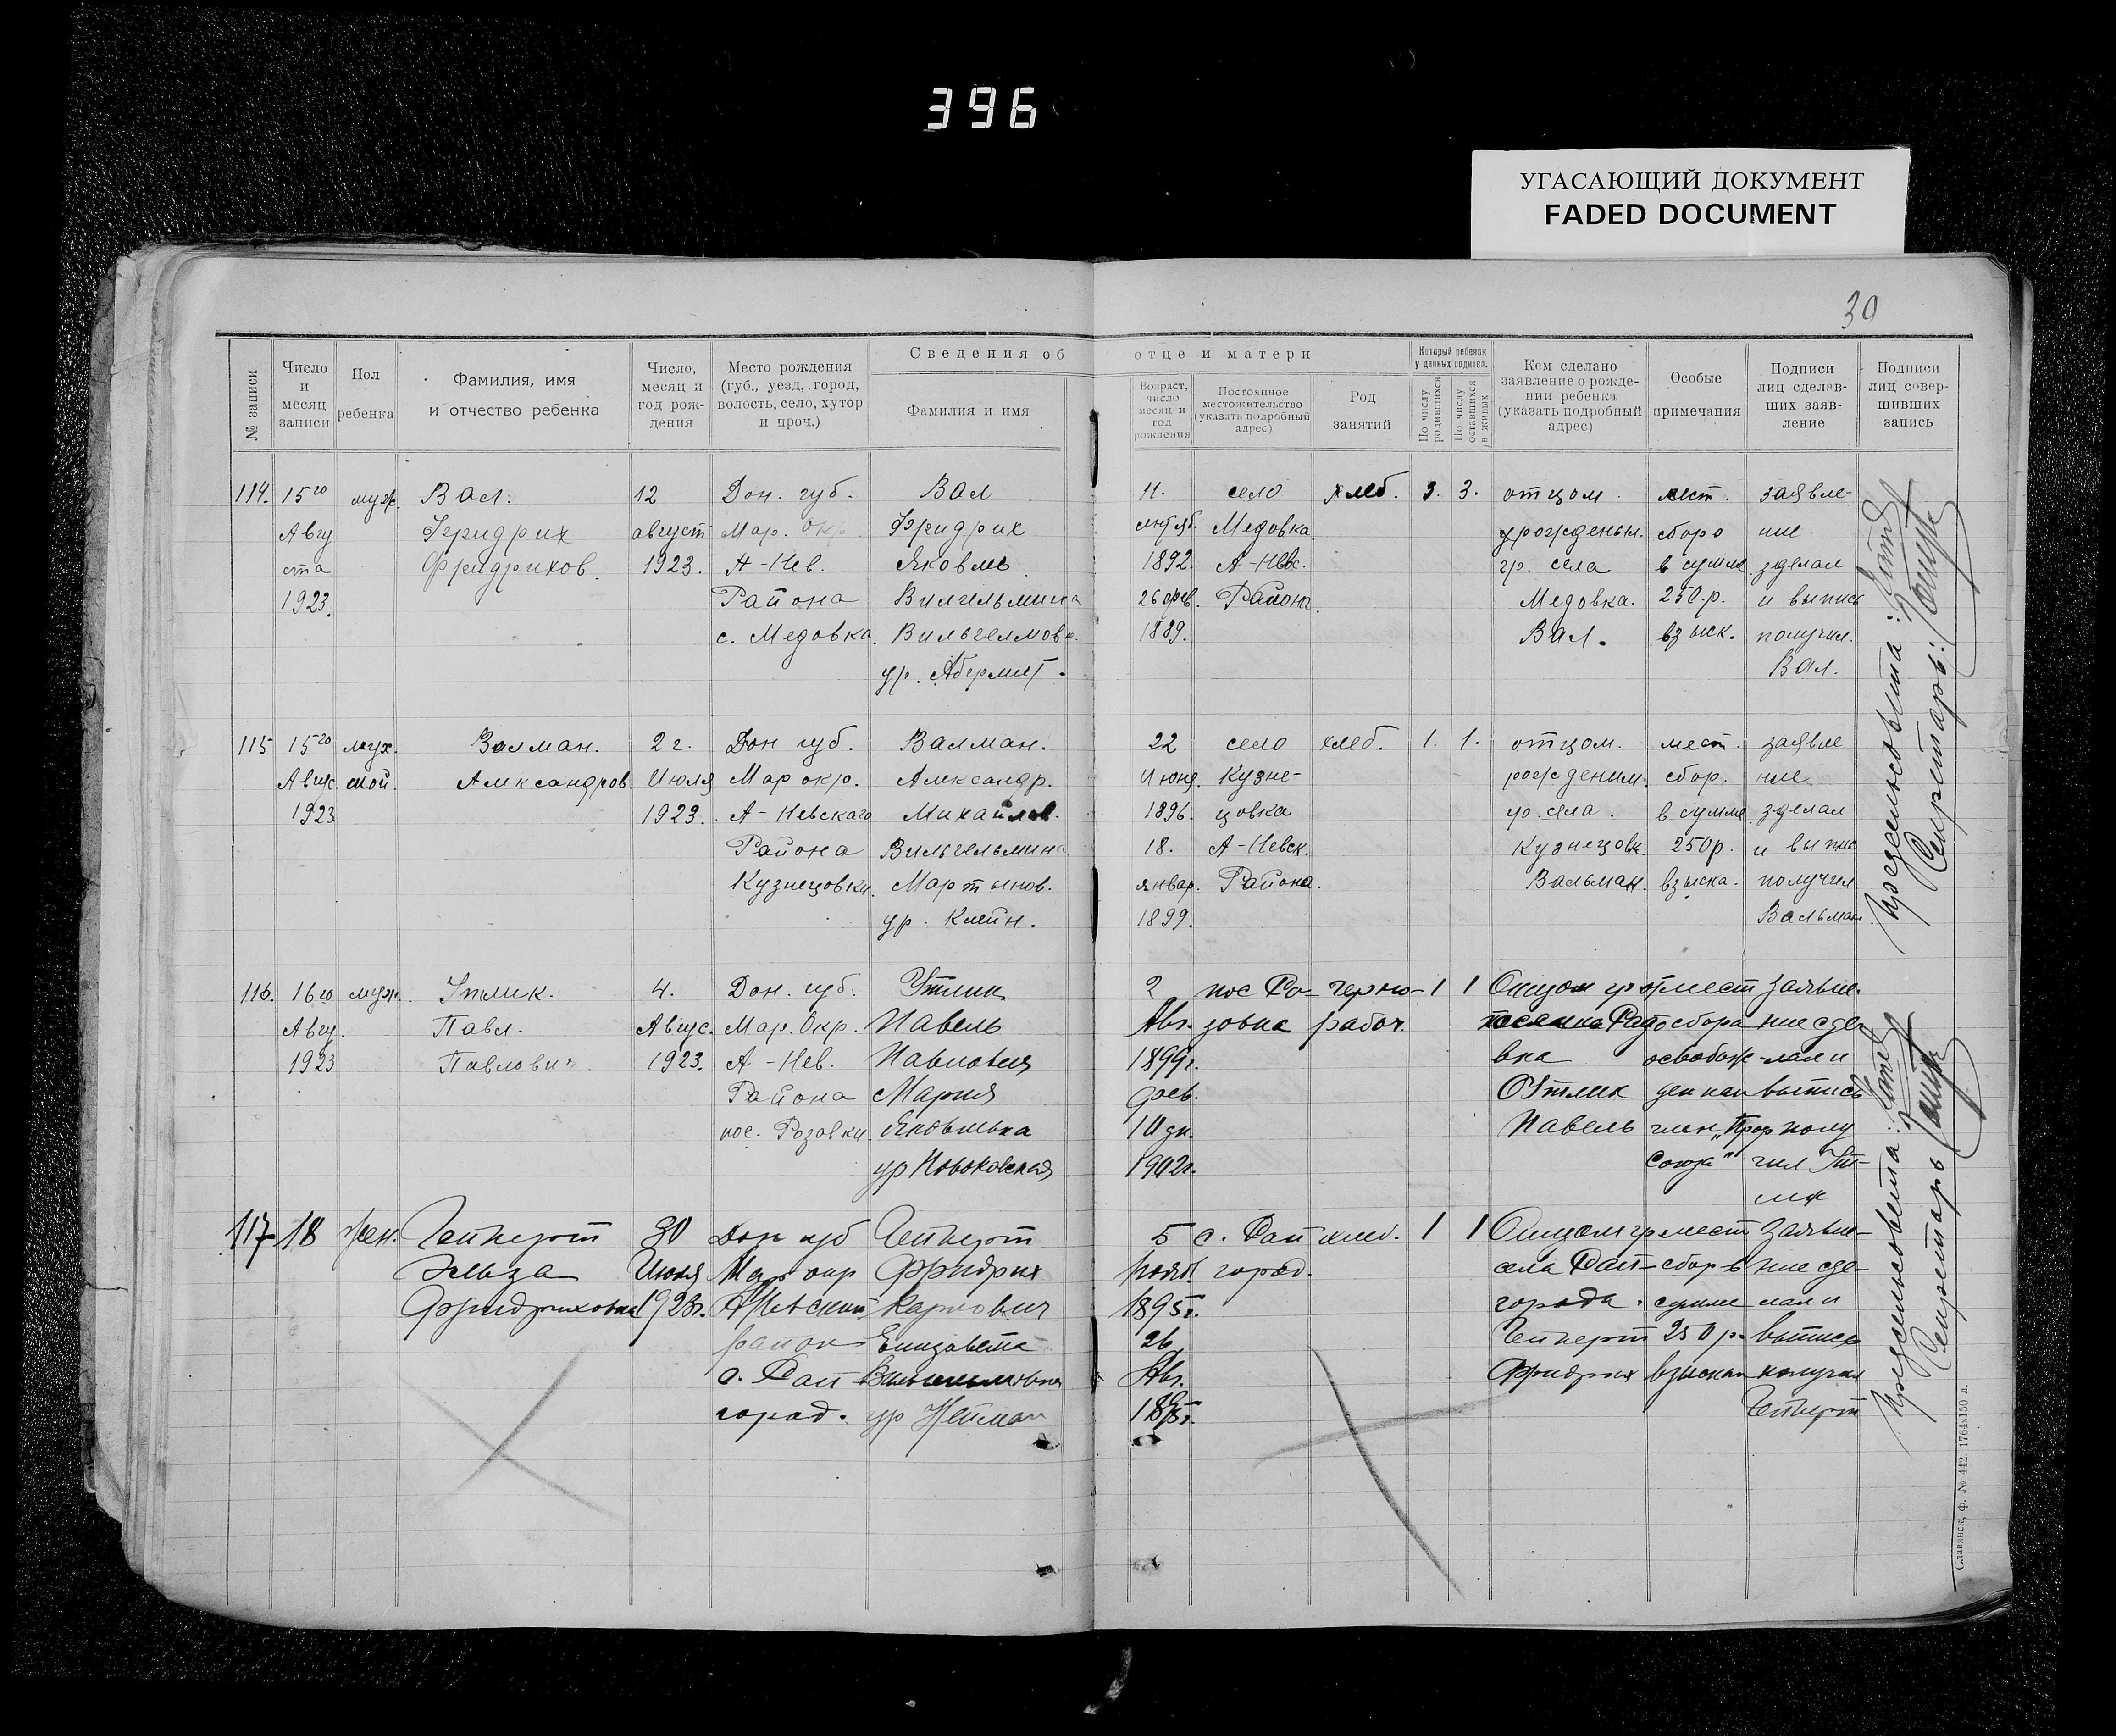 396
УГАСАЮЩИЙ ДОКУМЕНТ
FADED DOCUMENT
30
№ записи
Число
и
месяц
записи
Пол
ребенка
Фамилия, имя
и отчество ребенка
Число,
месяц и
год рож-
дения
Место рождения
(губ., уезд, город,
волость, село, хутор
и проч.)
Сведения об отце и матери
Фамилия и имя
Возраст,
число
месяц и
год
рождения
Постоянное
местожительство
(указать подробный
адрес)
Род
занятий
Который ребенок
у данных родител.
По числу
родившихся
По числу
оставшихся
в живых
Кем сделано
заявление о рожде-
нии ребенка
(указать подробный
адрес)
Особые
примечания
Подписи
лиц сделав-
ших заяв-
ление
Подписи
лиц совер-
шивших
запись
114.
15го
Авгу
ста
1923.
муж.
Вал.
Фридрих
Фридрихов.
12
август
1923.
Дон. губ.
Мар. Окр.
А-Нев.
Района
с. Медовка.
Вал
Фридрих
Яковлев
Вилгельмина
Вильгелмовн.
ур.
11.
сентяб.
1892.
26 фев.
1889.
село
Медовка
А-Невс.
Района.
хлеб.
3.
3.
отцом.
урожденым.
гр. села
Медовка.
Вал.
мест.
сборо
в сумме
250.р.
взыск.
заявле-
ние
зделал
и выпис
получил.
Вал.
115
15го
Авгус.
1923
муж.
ской.
Валман.
Александров.
2 г.
Июля
1923.
Дон губ.
Мар окр.
А-Невскаго
Района
Кузнецовки.
Валман.
Александр.
Михайлов.
Вильгельмина
Мартынов.
ур. Клейн.
22
Июня.
1896.
18.
январ.
1899.
село
Кузне-
цовка
А-Невск.
Района.
хлеб.
1.
1.
отцом.
рожденим.
гр. села.
Кузнецовк.
Вальман.
мест.
сбор.
в сумме
250р.
взыска.
заявле
ние
зделал
и выпис
получил
Вальман.
116.
16го
Авгу.
1923
муж.
Утлик.
Павл.
Павлович.
4.
Авгус.
1923.
Дон. губ.
Мар. Окр.
А-Нев.
Района
пос. Розовки.
Утлик
Павель
Павлович
Мария
Яковлевна
2
Авг.
1899г.
фев.
10 дн.
1902г.
пос Ро-
зовка
черно-
рабоч.
1
1
Отцом гр
поселка Разо
вка
Утлик
Павель
от мест
сбора
освобож-
ден как
член „Проф
Союза"
Заявле.
ние сде-
лал и
выпись
полу
чил Ут-
лик
117
18
жен.
Гепперт
Эльза
Фридриховна
30
Июля
1923г.
Дон губ
Мар окр
АНевский
район
с. Рай
город.
Гепперт
Фридрих
Карлович
Елизавета
Вильгельмовна
ур Нейман
5
Нояб
1895г.
26
Авг.
с. Рай
город.
хлеб.
1
1
Отцом гр
села Рай-
города.
Гепперт
Фридрих
мест
сбор в
сумме
250 р.
взыскан
Заявле-
ние сде-
лал и
выпись
получил
Гепперт
Предсельсовета:
Секретарь:
Предсельсовета:
Секретарь
Славянск, ф. № 442. 1764х150 л.